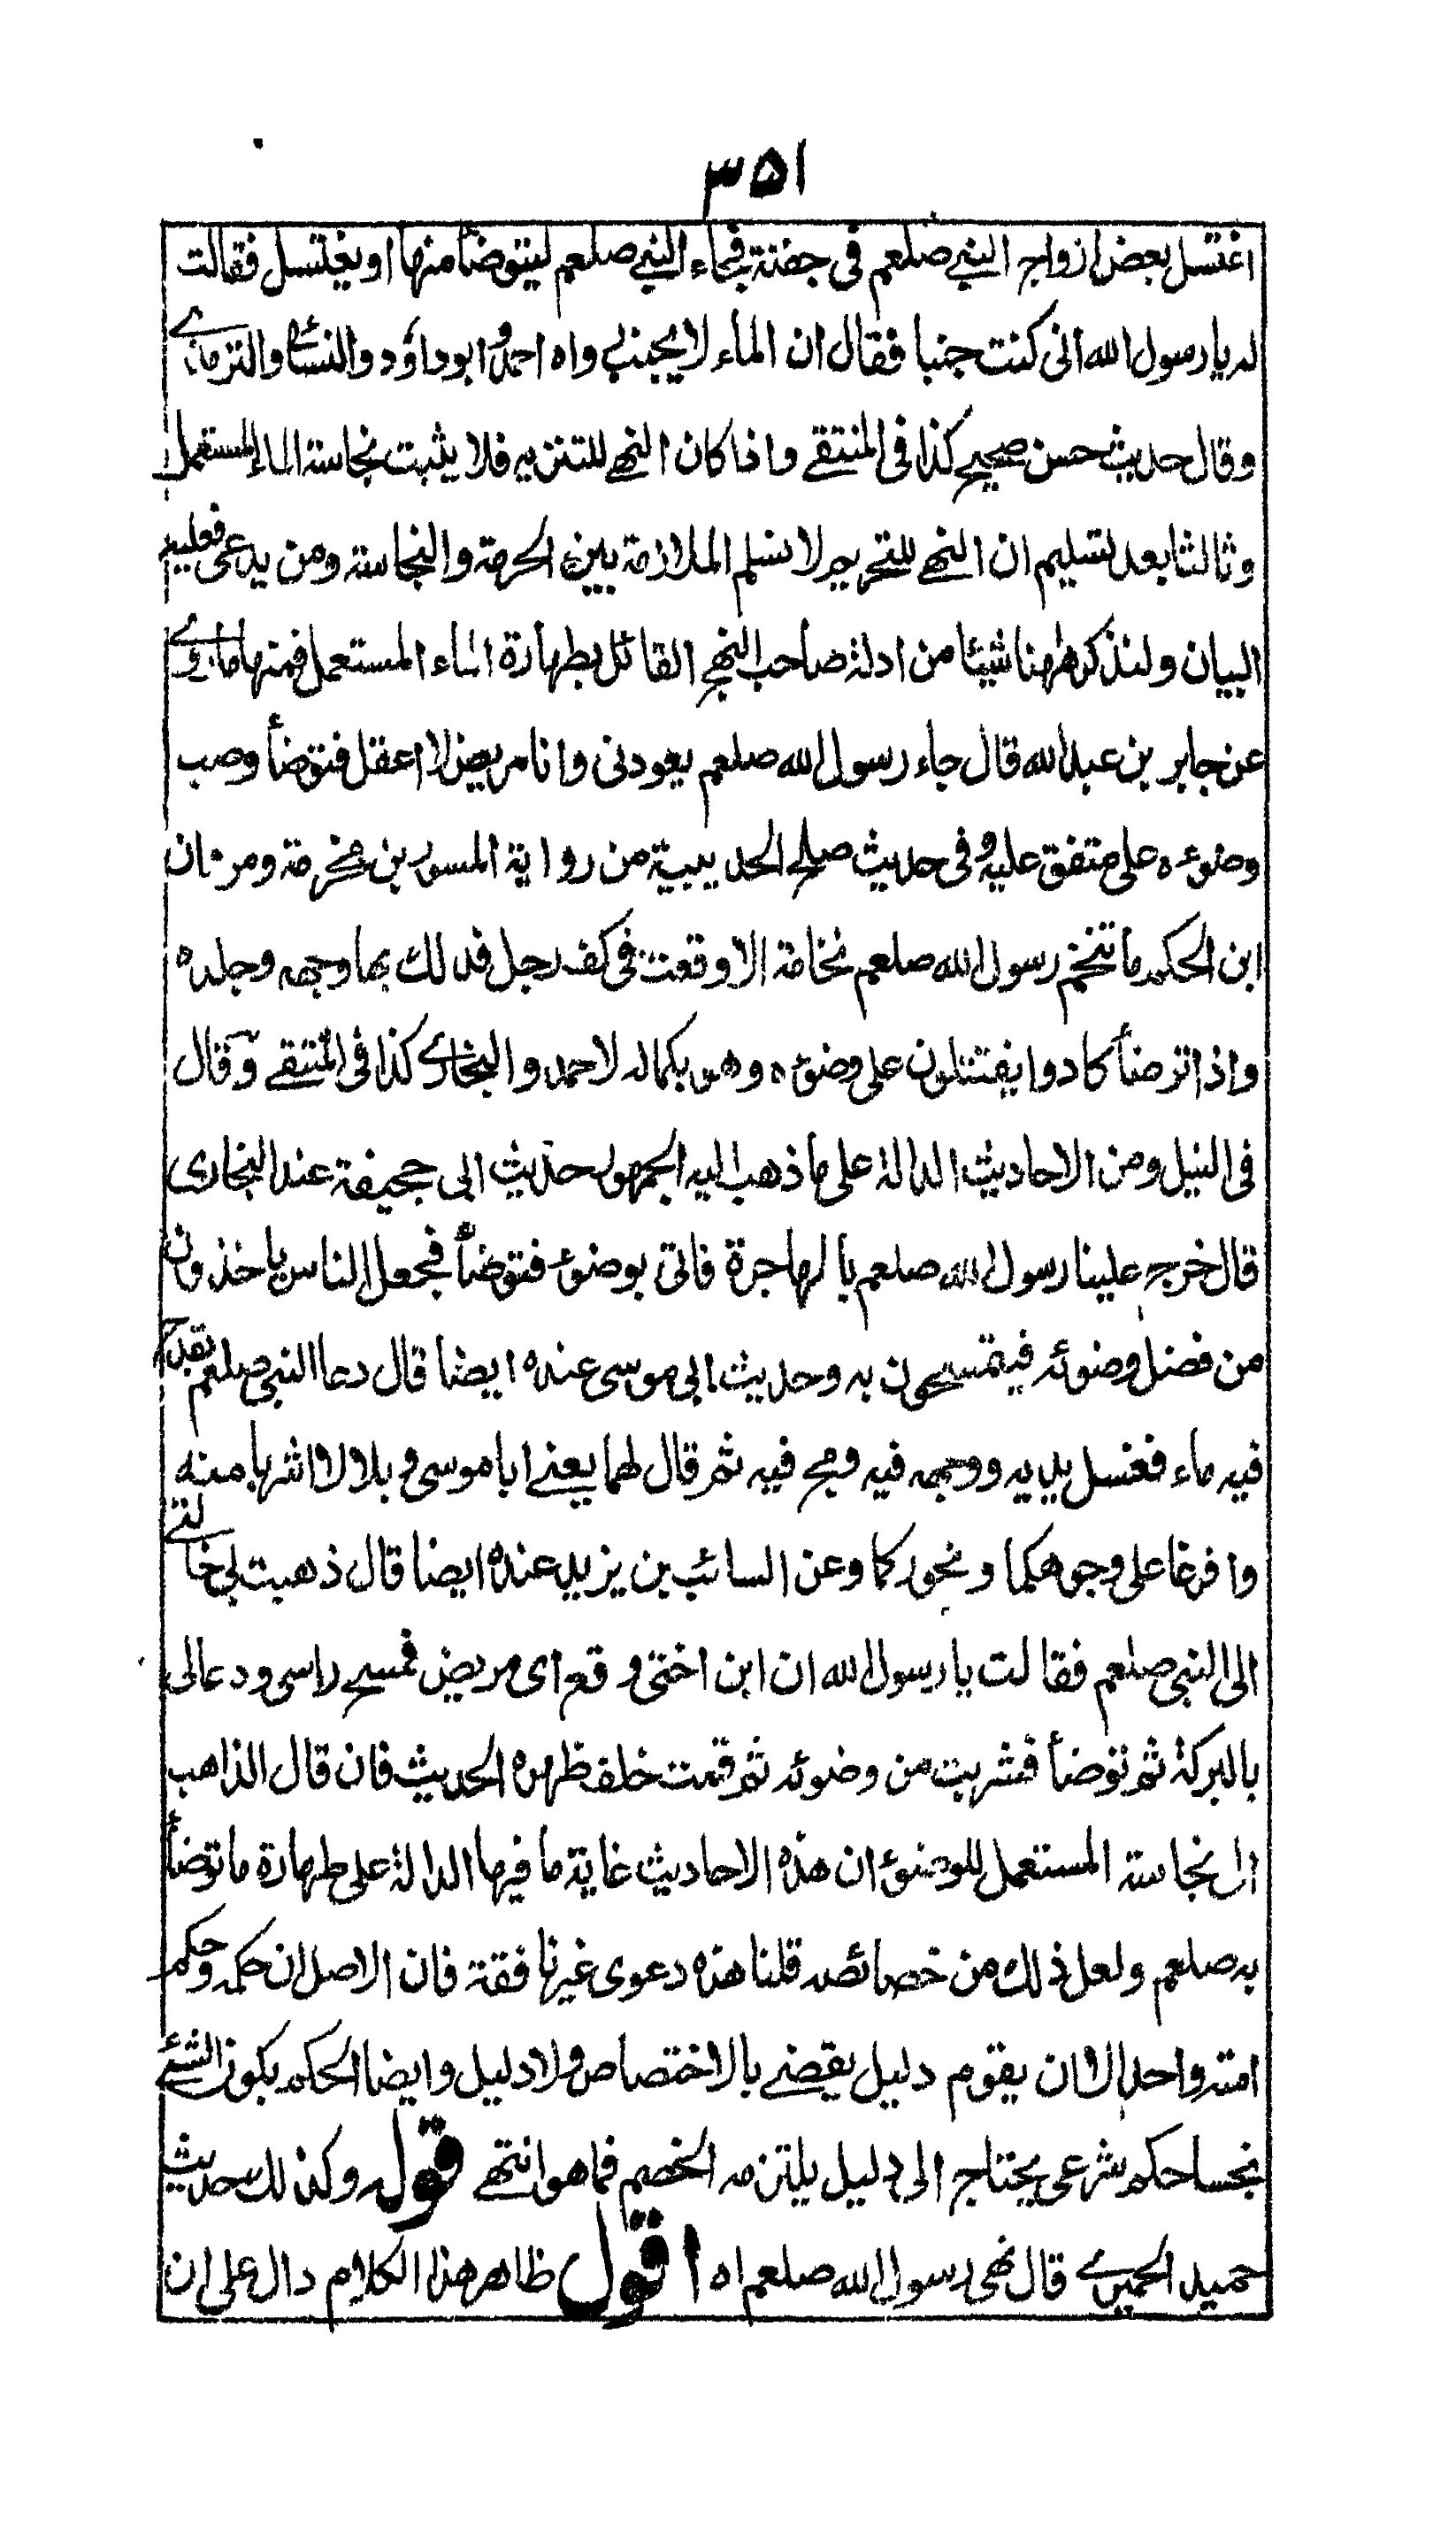 ٣٥١
اغتسل بعض ازواج النبي صلعم فى جفنة فجاء النبي صلعم ليتوضأ منها او يغتسل فقالت
له يا رسول الله انى كنت جنبا فقال ان الماء لا يجنب رواه احمد وابو داؤد والنسائي والترمذي
وقال حديث حسن صحيح كذا فى المنتقے واذا كان النهے للتنزيه فلا يثبت نجاسة الماء المستعمل
وثالثا بعد تسليم ان النهے للتحريم لا نسلم الملازمة بين الحرمة والنجاسة ومن يدعى فعليه
البيان ولنذكر ههنا شيئا من ادلة صاحب النهج القائل بطهارة الماء المستعمل فمنها ما روے
عن جابر بن عبد الله قال جاء رسول الله صلعم يعودنى وانا مريض لا اعقل فتوضأ وصب
وضوءه على متفق عليه وفى حديث صلح الحديبية من رواية المسور بن مخرمة ومروان
ابن الحكم ما تنخم رسول الله صلعم نخامة الا وقعت فى كف رجل فدلك بها وجهه وجلده
واذا توضأ كادوا يقتتلون على وضوءه وهو بكماله لاحمد والبخارى كذا فى المنتقے وقال
فى النيل ومن الاحاديث الدالة على ما ذهب اليه الجمهور حديث ابى جحيفة عند البخارى
قال خرج علينا رسول الله صلعم بالهاجرة فاتى بوضوء فتوضأ فجعل الناس ياخذون
من فضل وضوئه فيتمسحون به وحديث ابى موسى عنده ايضا قال دعا النبى صلعم بقدح
فيه ماء فغسل يديه ووجهه فيه ومج فيه ثم قال لهما يعنے ابا موسى وبلالا اشربا منه
وافرغا على وجوهكما ونحوركما وعن السائب بن يزيد عنده ايضا قال ذهبت بى خالتے
الى النبى صلعم فقالت يا رسول الله ان ابن اختى وقع اى مريض فمسح راسى ودعا لى
بالبركة ثم توضأ فشربت من وضوئه ثم قمت خلف ظهره الحديث فان قال الذاهب
الى نجاسة المستعمل للوضوء ان هذه الاحاديث غاية ما فيها الدالة على طهارة ما توضأ
به صلعم ولعل ذلك من خصائصه قلنا هذه دعوى غير نافقة فان الاصل ان حكمه وحكم
امته واحد الا ان يقوم دليل يقضے بالاختصاص ولا دليل وايضا الحكم بكون الشئے
نجسا حكم شرعى يحتاج الى دليل يلتزمه الخصم فما هو انتهے قوله وكذلك حديث
حميد الحميرے قال نهى رسول الله صلعم اه اقول ظاهر هذا الكلام دال على ان